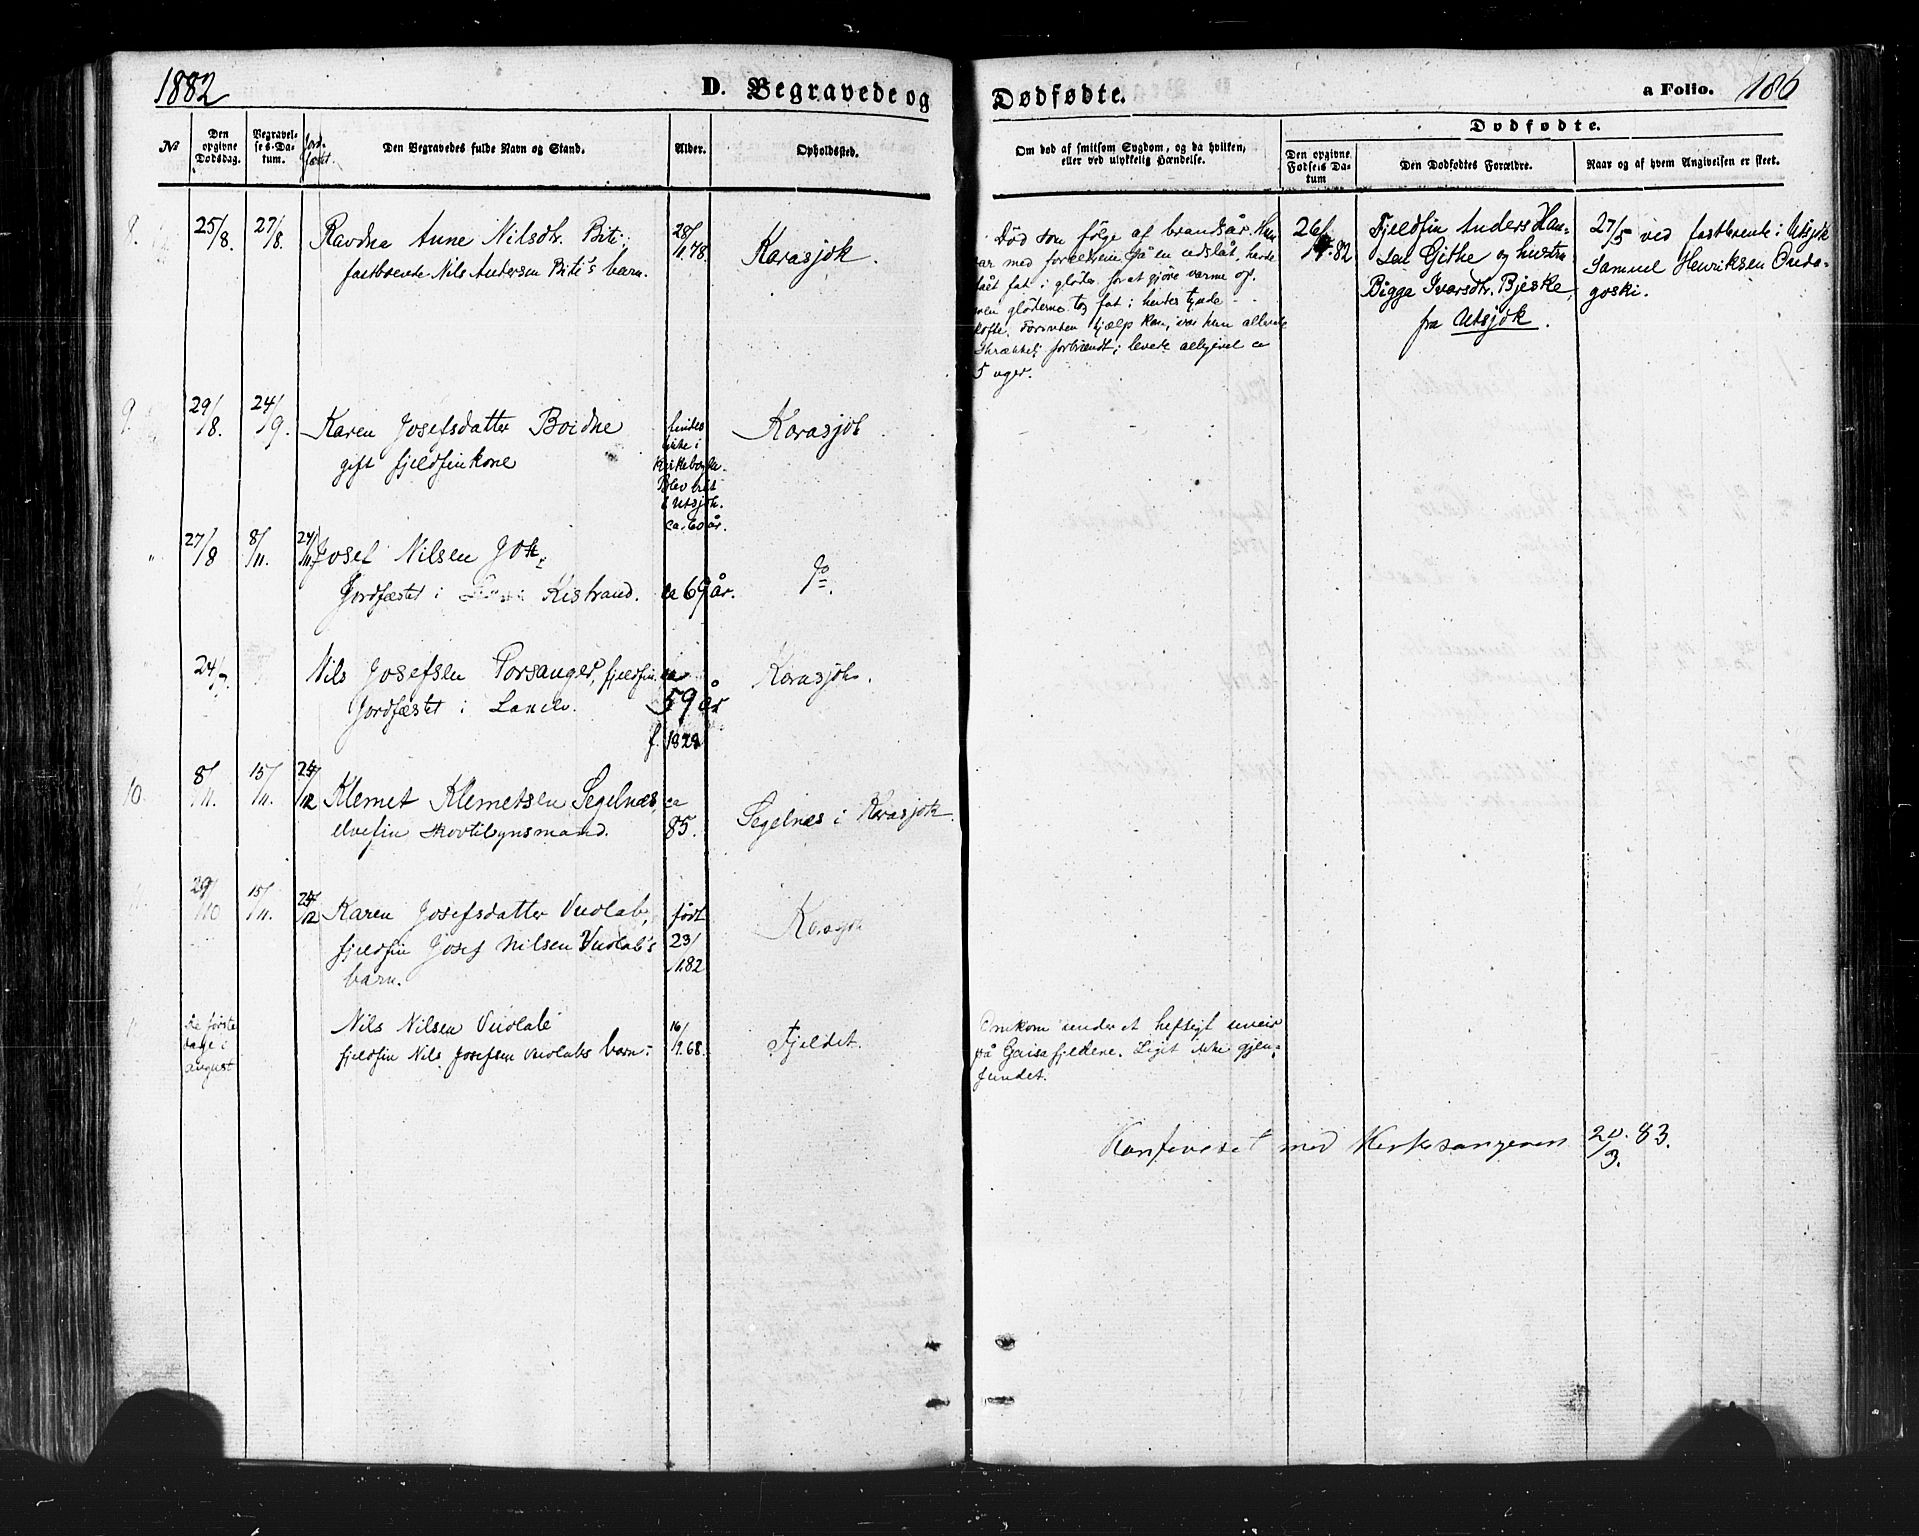 1882
D. Begravede og Dødfødte.
a Folio. 186
No
Den opgivne Dødsdag.
Begravelses-Datum.
Jordfæstet.
Den Begravedes fulde Navn og Stand.
Alder.
Opholdssted.
Om død af smitsom Sygdom, og da hvilken,
eller ved ulykkelig Hændelse.
Dødfødte.
Den opgivne Fødsels Datum
Den Dødfødtes Forældre.
Naar og af hvem Angivelsen er skeet.
8. 25/8. 27/8. Ravdna Anne Nilsdtr. Biti. 28/1.78. Karasjok.
fastboende Nils Andersen Biti's barn.
Død som følge af brandsår. Hun
var med forældrene på en udslåt, havde
fåt fat i gløder for at gjöre varme op.
men gløderne tog fat i hendes tynde
kofte. Foruden hjælp kan, var hun allerede
skrækkelig forbrændt; levede alligevel ca
5 uger.
26/ .82
Fjeldfin Anders Hansen
Githe og hustru
Bigge Ivarsdtr. Bjeske
fra Utsjok.
27/5 ved fastboende i Utsjok
Samuel Henriksen
goski.
9. 29/8. 24/9. Karen Josefsdatter Boidne Karasjok
gift fjeldfinkone
findes
ikke i
Kirkebogen.
Blev
i Utsjok.
ca. 60 år.
" 27/8 8/11. 24/11 Josef Nilsen
Jordfæstet i Kistrand. ca 69 år. do
24/ Nils Josefsen Porsanger, fjeldfin. ca Karasjok.
Jordfæstet i 59 år
f. 1823
10. 8/11. 15/11. 24/12 Klemet Klemetsen Segelnæs, ca Segelnæs i Karasjok.
elvefin 85.
11. 29/10 15/11. 24/12 Karen Josefsdatter Vuolab, født Karasjok
fjeldfin Josef Nilsen Vuolab's 23/
barn. 1.82
De første
dage i
august
Nils Nilsen Vuolab
fjeldfin Nils Josefsen Vuolabs barn. 16/9.68. Fjeldet.
Omkom under et heftigt uveir
på Gaisafjeldene. Liget ikke gjen-
fundet.
Konfereret med Kirkesangeren 20/3. 83.